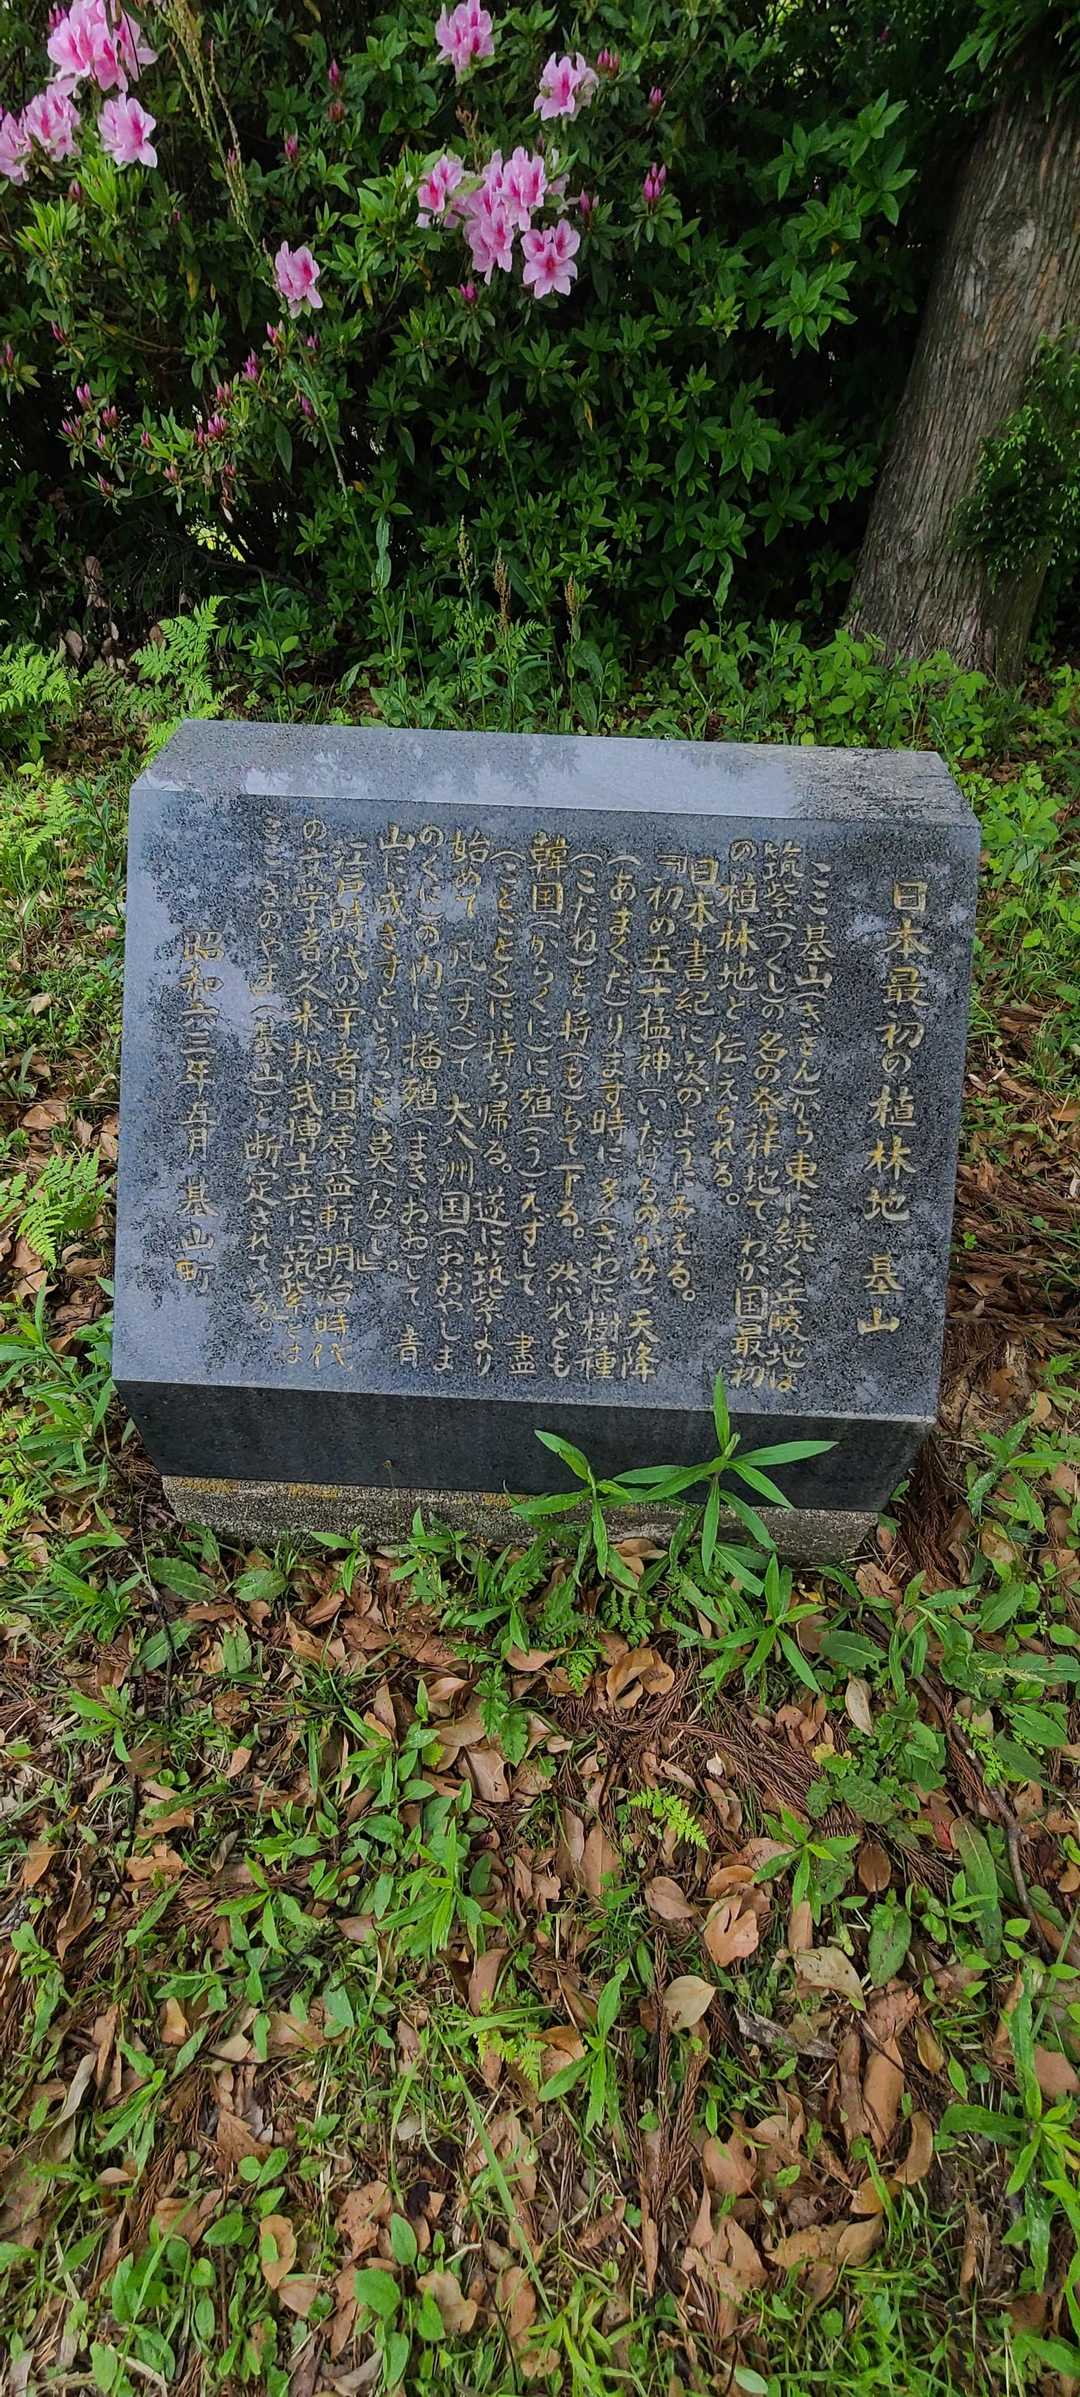 日本最初の植林地 基山
ここ基山(きざん)から東に続く丘陵地は
筑紫(つくし)の名の発祥地で わが国最初
の植林地と伝えられる。
日本書紀に次のようにみえる。
『初め五十猛神(いたけるのかみ)天降
(あまくだ)ります時に 多(さわ)に樹種
(こだね)を将(も)ちて下る。然れども
韓国(からくに)に殖(う)えずして、盡
(ことごとく)に持ち帰る。遂に筑紫より
始めて 凡(すべ)て 大八洲国(おおやしま
のくに)の内に 播殖(まきおお)して、青
山に成さずということ莫(な)し。』
江戸時代の学者貝原益軒 明治時代
の文学者久米邦武博士共に「筑紫とは
ここきのやま(基山)」と断定されている。
昭和六三年五月 基山町